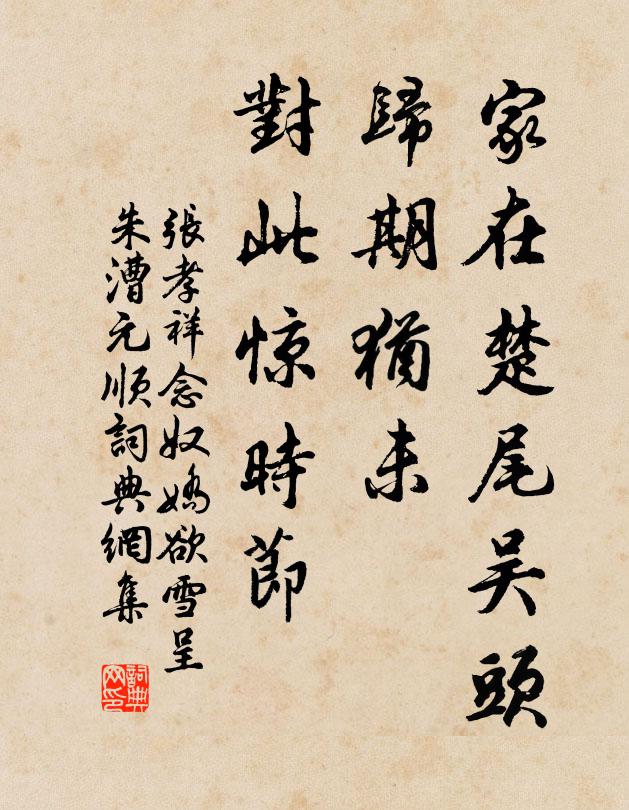 家在楚尾吴頭
歸期猶未
對此惊時節
張孝祥念奴嬌欲雪呈
朱漕元順詞典網集
詞典网印